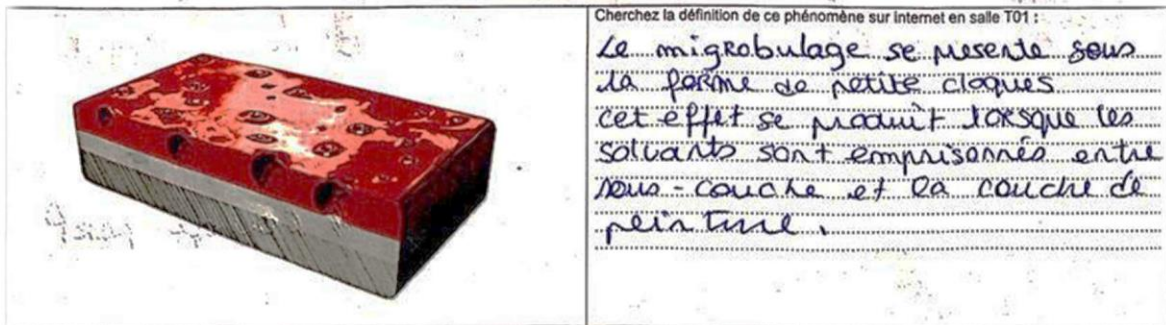 Cherchez la définition de ce phénomène sur internet en salle T01 :
Le migrobulage se presente sous
la forme de petite cloques
cet effet se produit lorsque les
solvants sont emprisonnés entre
sous-couche et la couche de
peinture.